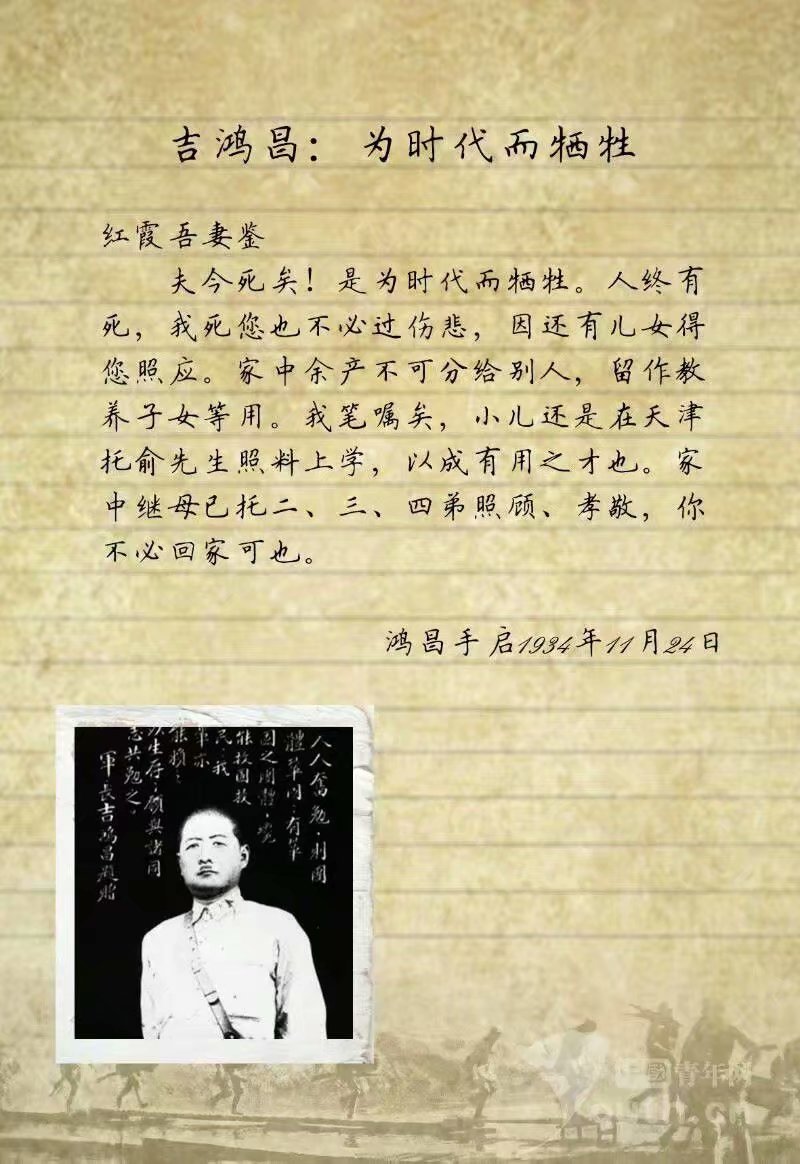 吉鸿昌：为时代而牺牲
红霞吾妻鉴
夫今死矣！是为时代而牺牲。人终有
死，我死您也不必过伤悲，因还有儿女得
您照应。家中余产不可分给别人，留作教
养子女等用。我笔嘱矣，小儿还是在天津
托俞先生照料上学，以成有用之才也。家
中继母已托二、三、四弟照顾、孝敬，你
不必回家可也。
鸿昌手启1934年11月24日
人人奋勉·利国
體華以·有華
國之團體·
能救國救
民·我
華亦
能賴
以生存·願與諸同
志共勉之
軍長吉鴻昌題贈
中國青年网